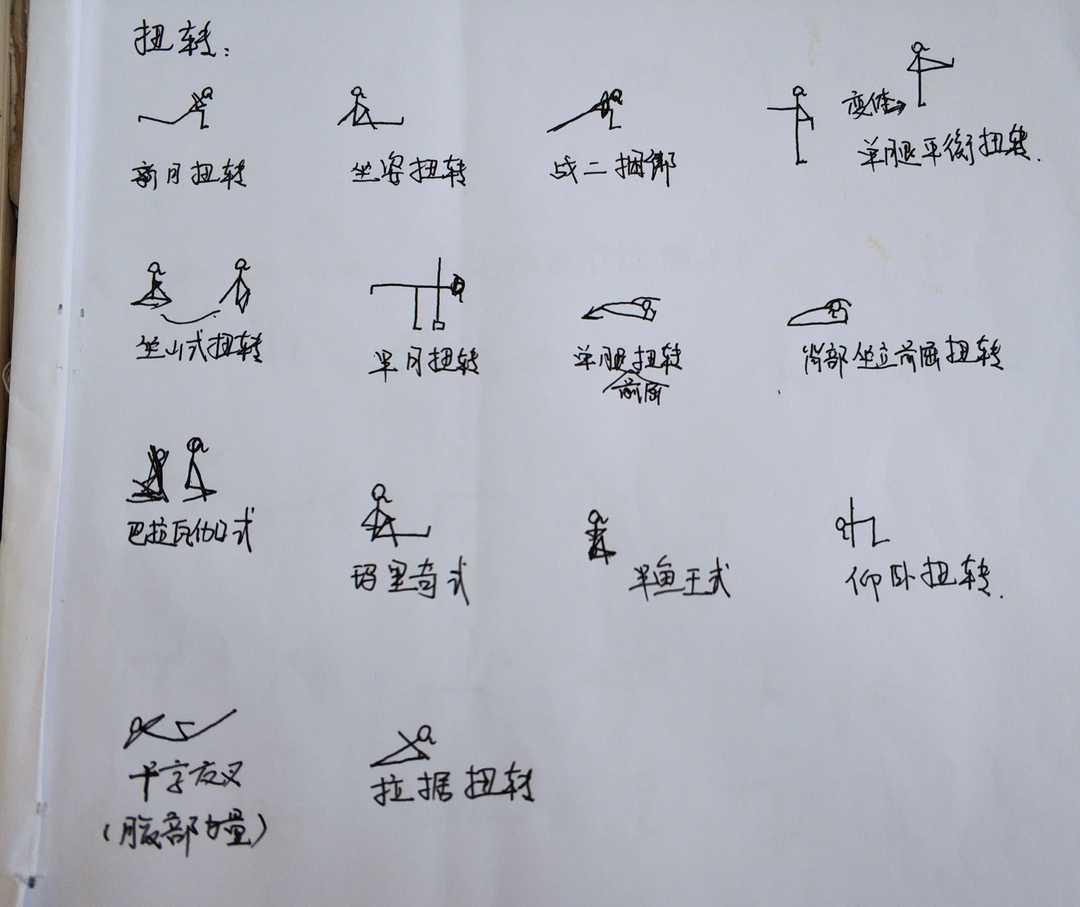 扭转:
新月扭转
坐姿扭转
战二捆绑
变体→
单腿平衡扭转.
坐山式扭转
半月扭转
单腿扭转
前屈
背部坐立前屈扭转
巴拉瓦伽式
玛里奇式
半鱼王式
仰卧扭转.
十字交叉
(腹部力量)
拉据扭转